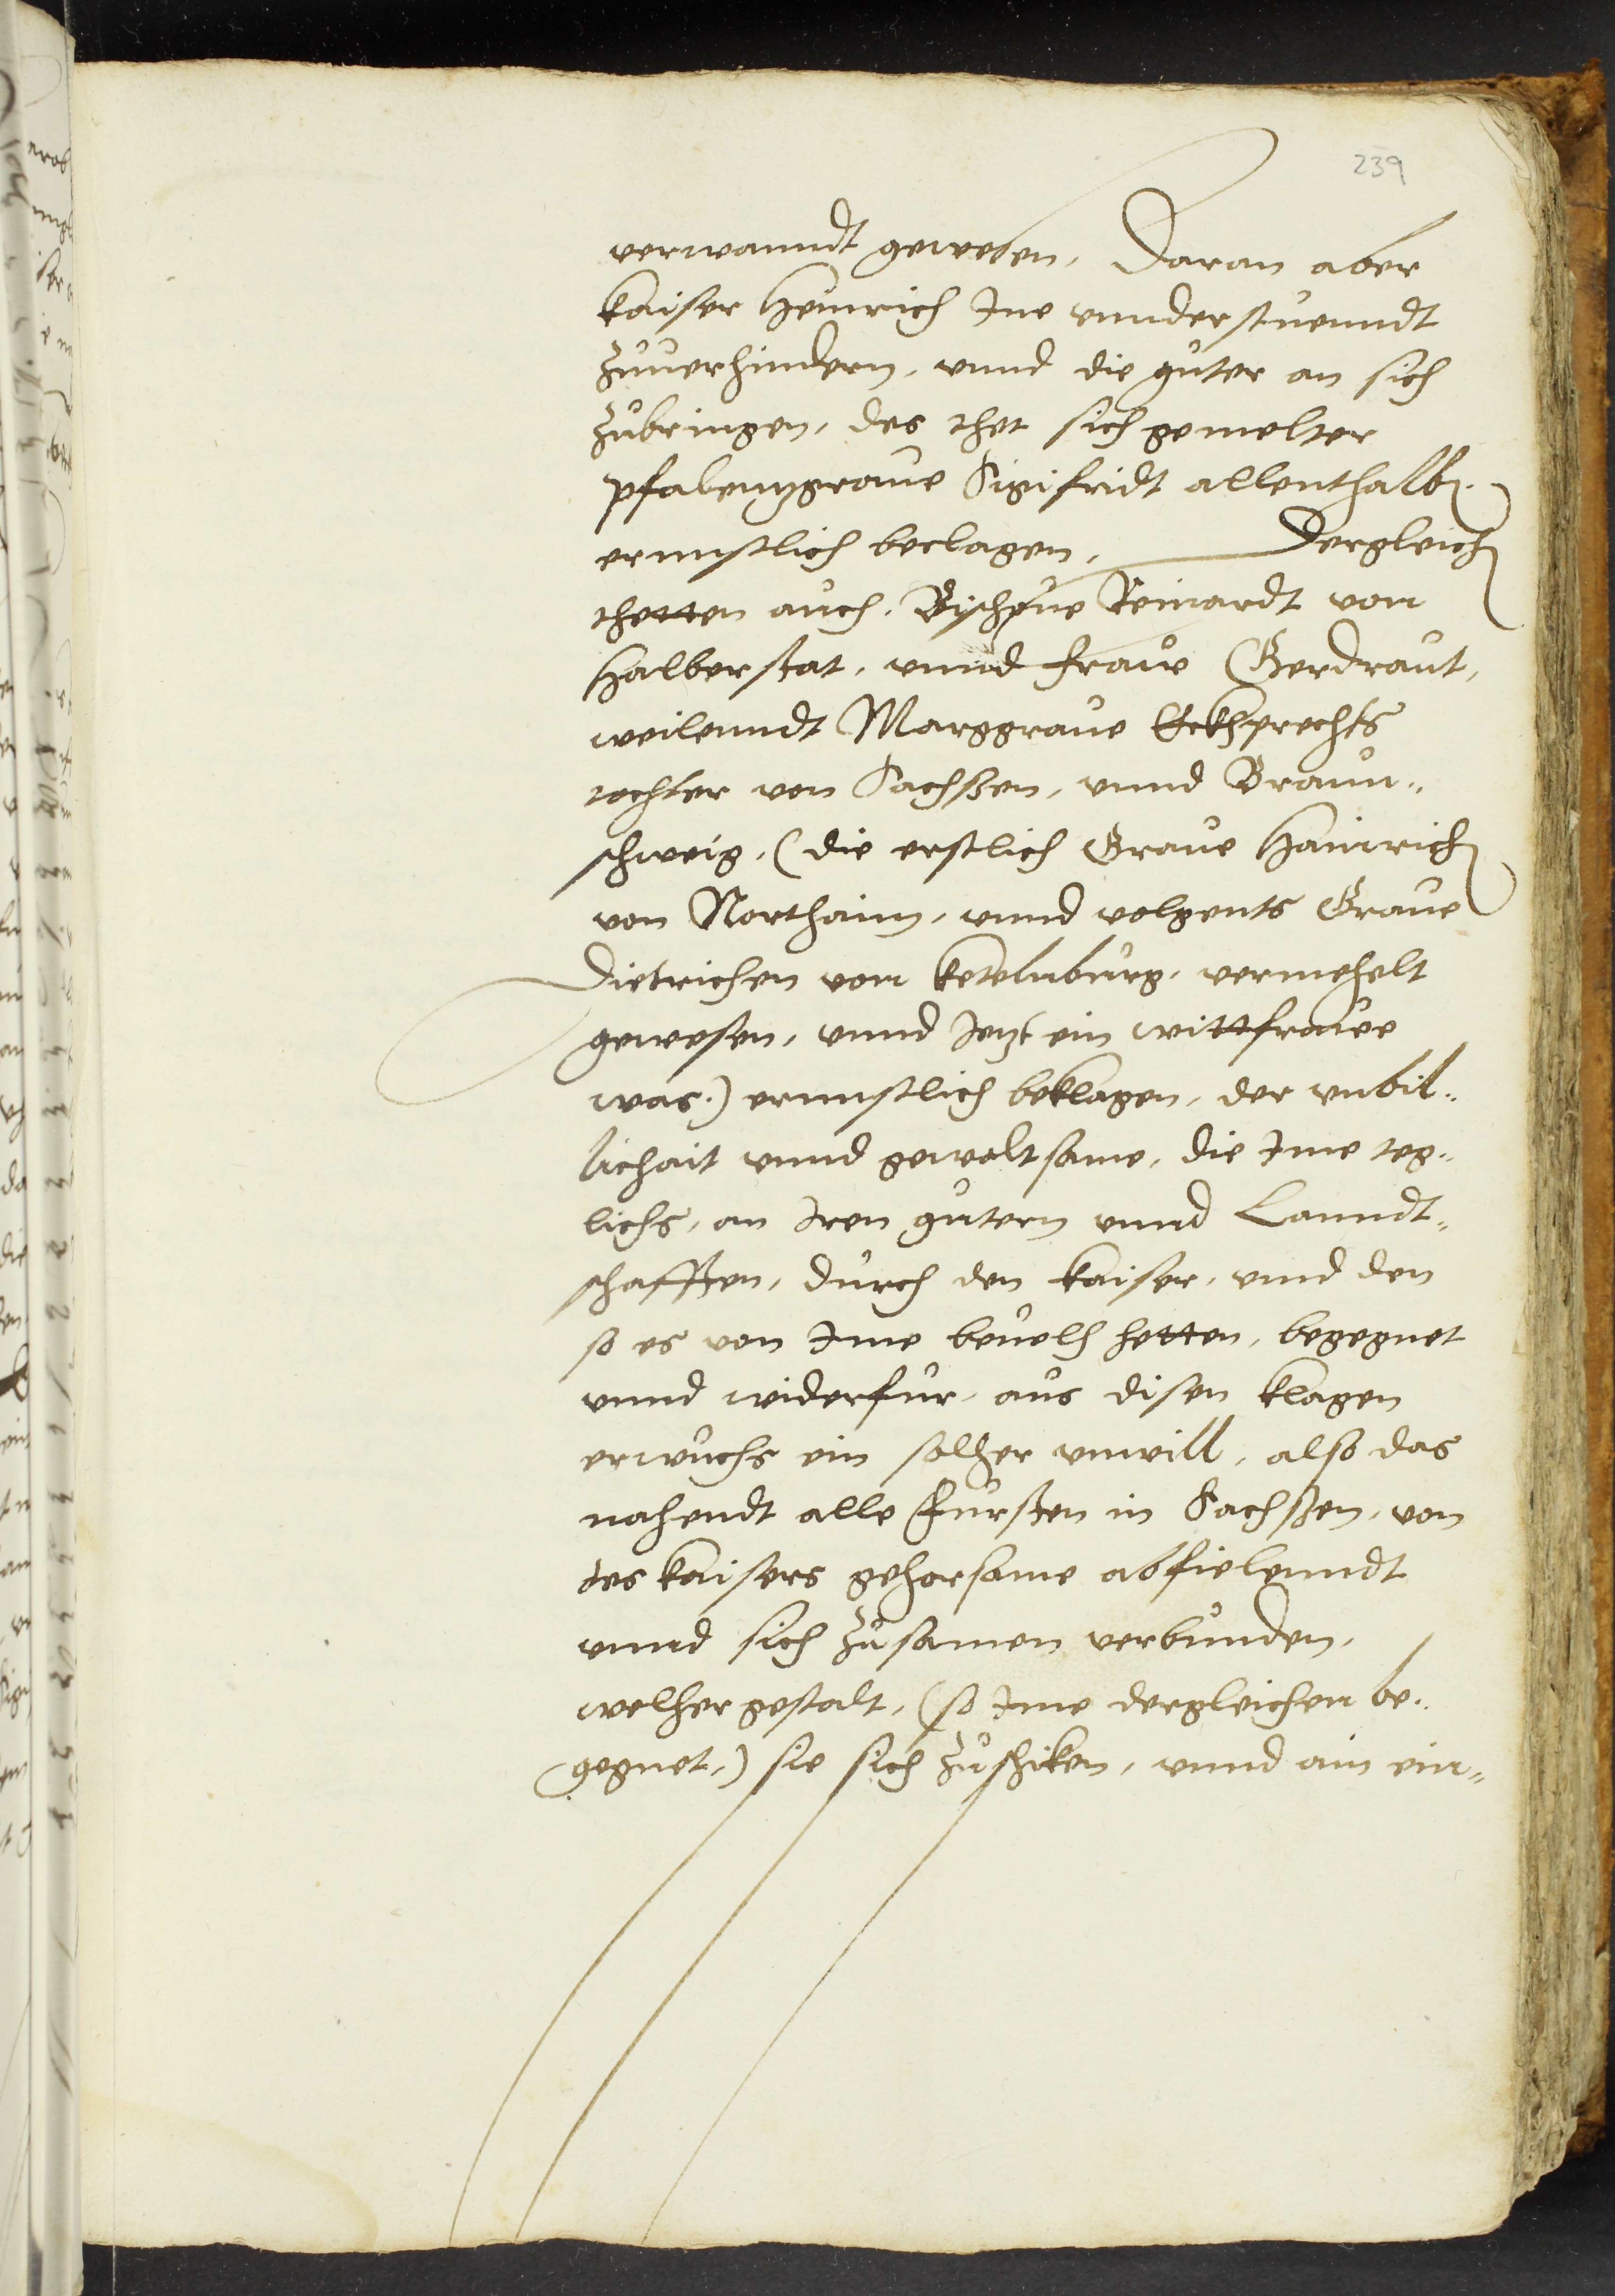 239
verwanndt gewesen, Daran aber
kaiser Heinrich Ine vnnderstuenndt
zuuerhindern, vnnd die guter an sich
zubringen, des thet sich gemelter
pfalenngraue Sigifridt allenthalb.
ernnstlich beclagen, Dergleich
thetten auch, Bischoue Reinardt von
Halberstat, vnnd fraue Gerdraut,
weilenndt Marggraue Eckhprechts
tochter von Sachßen, vnnd Braun„
schweig, (die erstlich Graue Hainrich
von Northaim, vnnd volgents Graue
Dietrichen von ketelnburg, vermehelt
gewesen, vnnd Jetzt ein wittfraue
was.) ernnstlich beklagen, der vnbil„
lichait vnnd geweltsame, die Ime teg„
lichs, an Iren gutern vnnd Lanndt„
schafften, durch den kaiser, vnnd den
so es von Ime beuelh hetten, begegnet
vnnd widerfur, aus disen klagen
erwuchs ein solher vnwill, also das
nahendt alle Fursten in Sachßen, von
des kaisers gehorsame abfielenndt
vnnd sich zusamen verbunden,
welher gestalt, (so Ime dergleichen be„
gegnet,) sie sich zuschiken, vnnd ain ein„